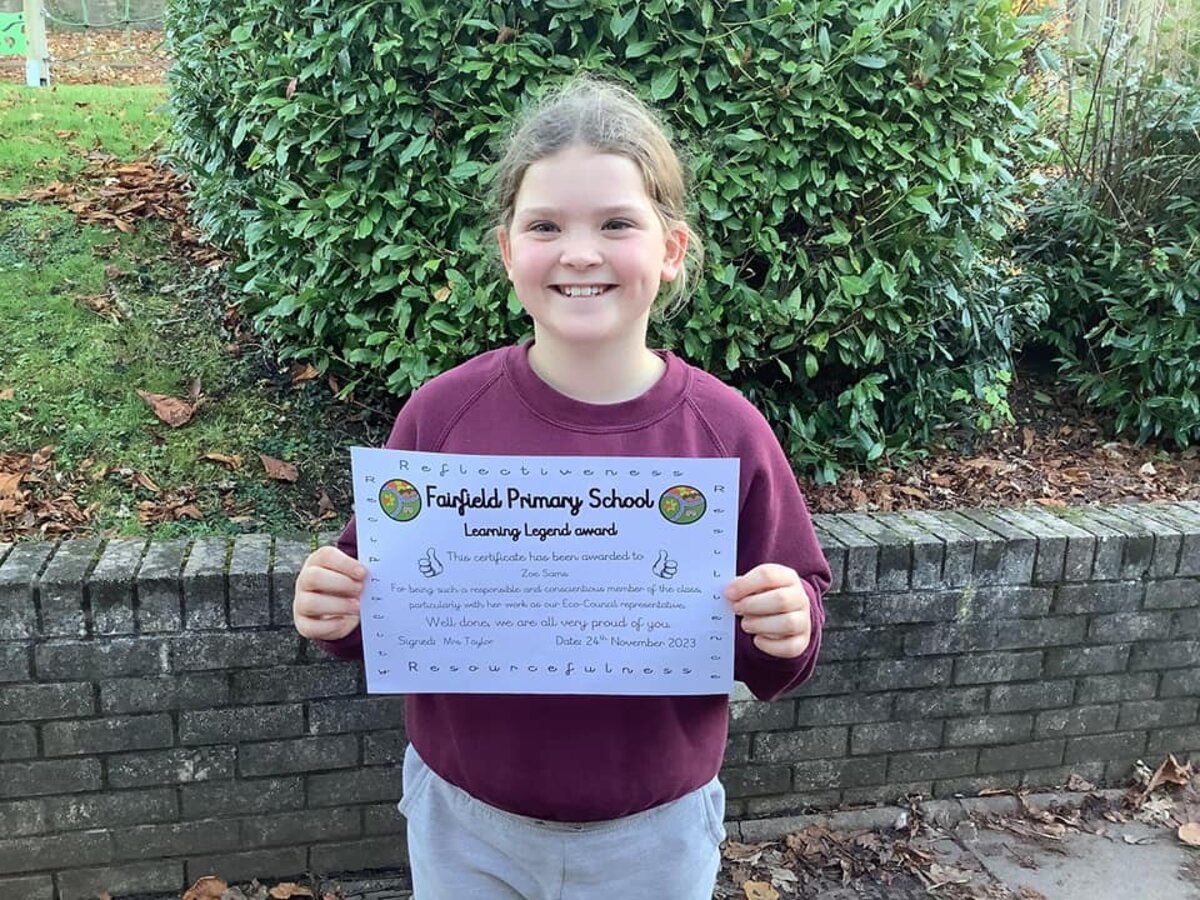 Reflectiveness
Fairfield Primary School
Learning Legend award
This certificate has been awarded to
Zoe Sams
For being such a responsible and conscientious member of the class,
particularly with her work as our Eco-Council representative.
Well done, we are all very proud of you.
Signed: Mrs Taylor Date: 24th November 2023
Resourcefulness
Reciprocity
Resilience